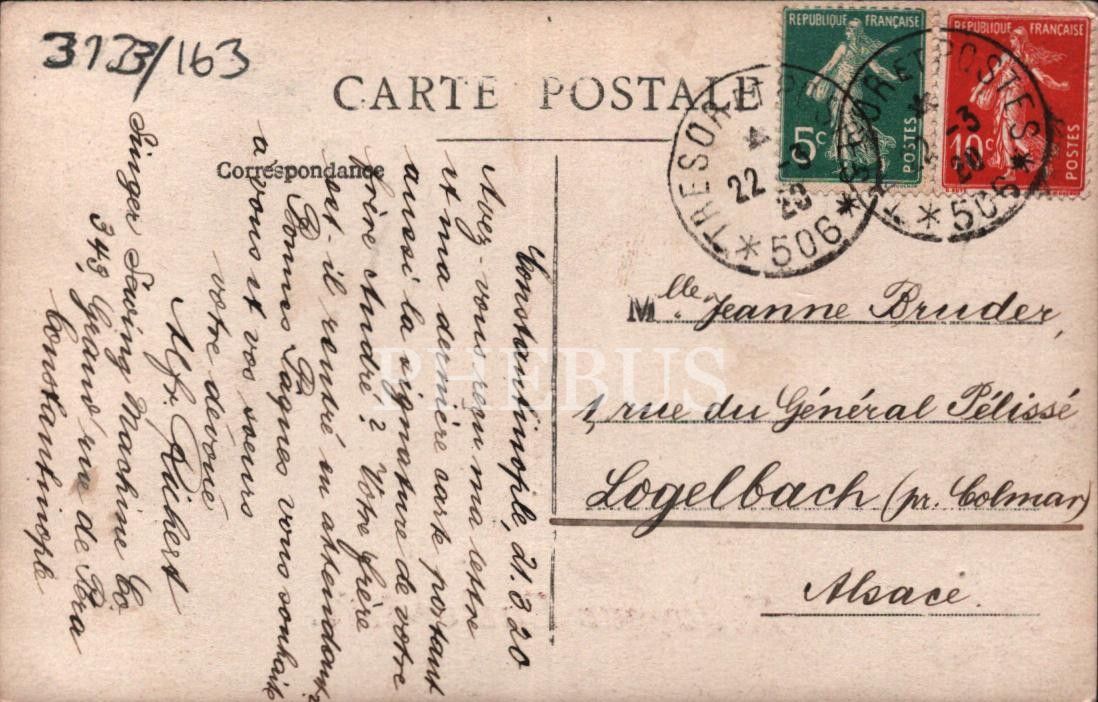 3133/163
CARTE POSTALE
Correspondance
REPUBLIQUE FRANÇAISE
5c
POSTES
REPUBLIQUE FRANÇAISE
10c
POSTES
TRESOR ET POSTES
22 -3
20
* 506 *
TRESOR ET POSTES
22 -3
20
* 506 *
Constantinople, 21.3.20
Avez-vous reçu ma lettre
et ma dernière carte portant
aussi la signature de votre
frère André? Votre frère
est-il rentré en attendant?
Bonnes Pâques vous souhaite
à vous et vos soeurs
votre dévoué
Alf.
Singer Sewing Machine Co
343 Grand' rue de Péra
Constantinople
Mlle Jeanne Bruder,
1, rue du Général Pélissé
Logelbach (pr. Colmar)
Alsace.
PHEBUS